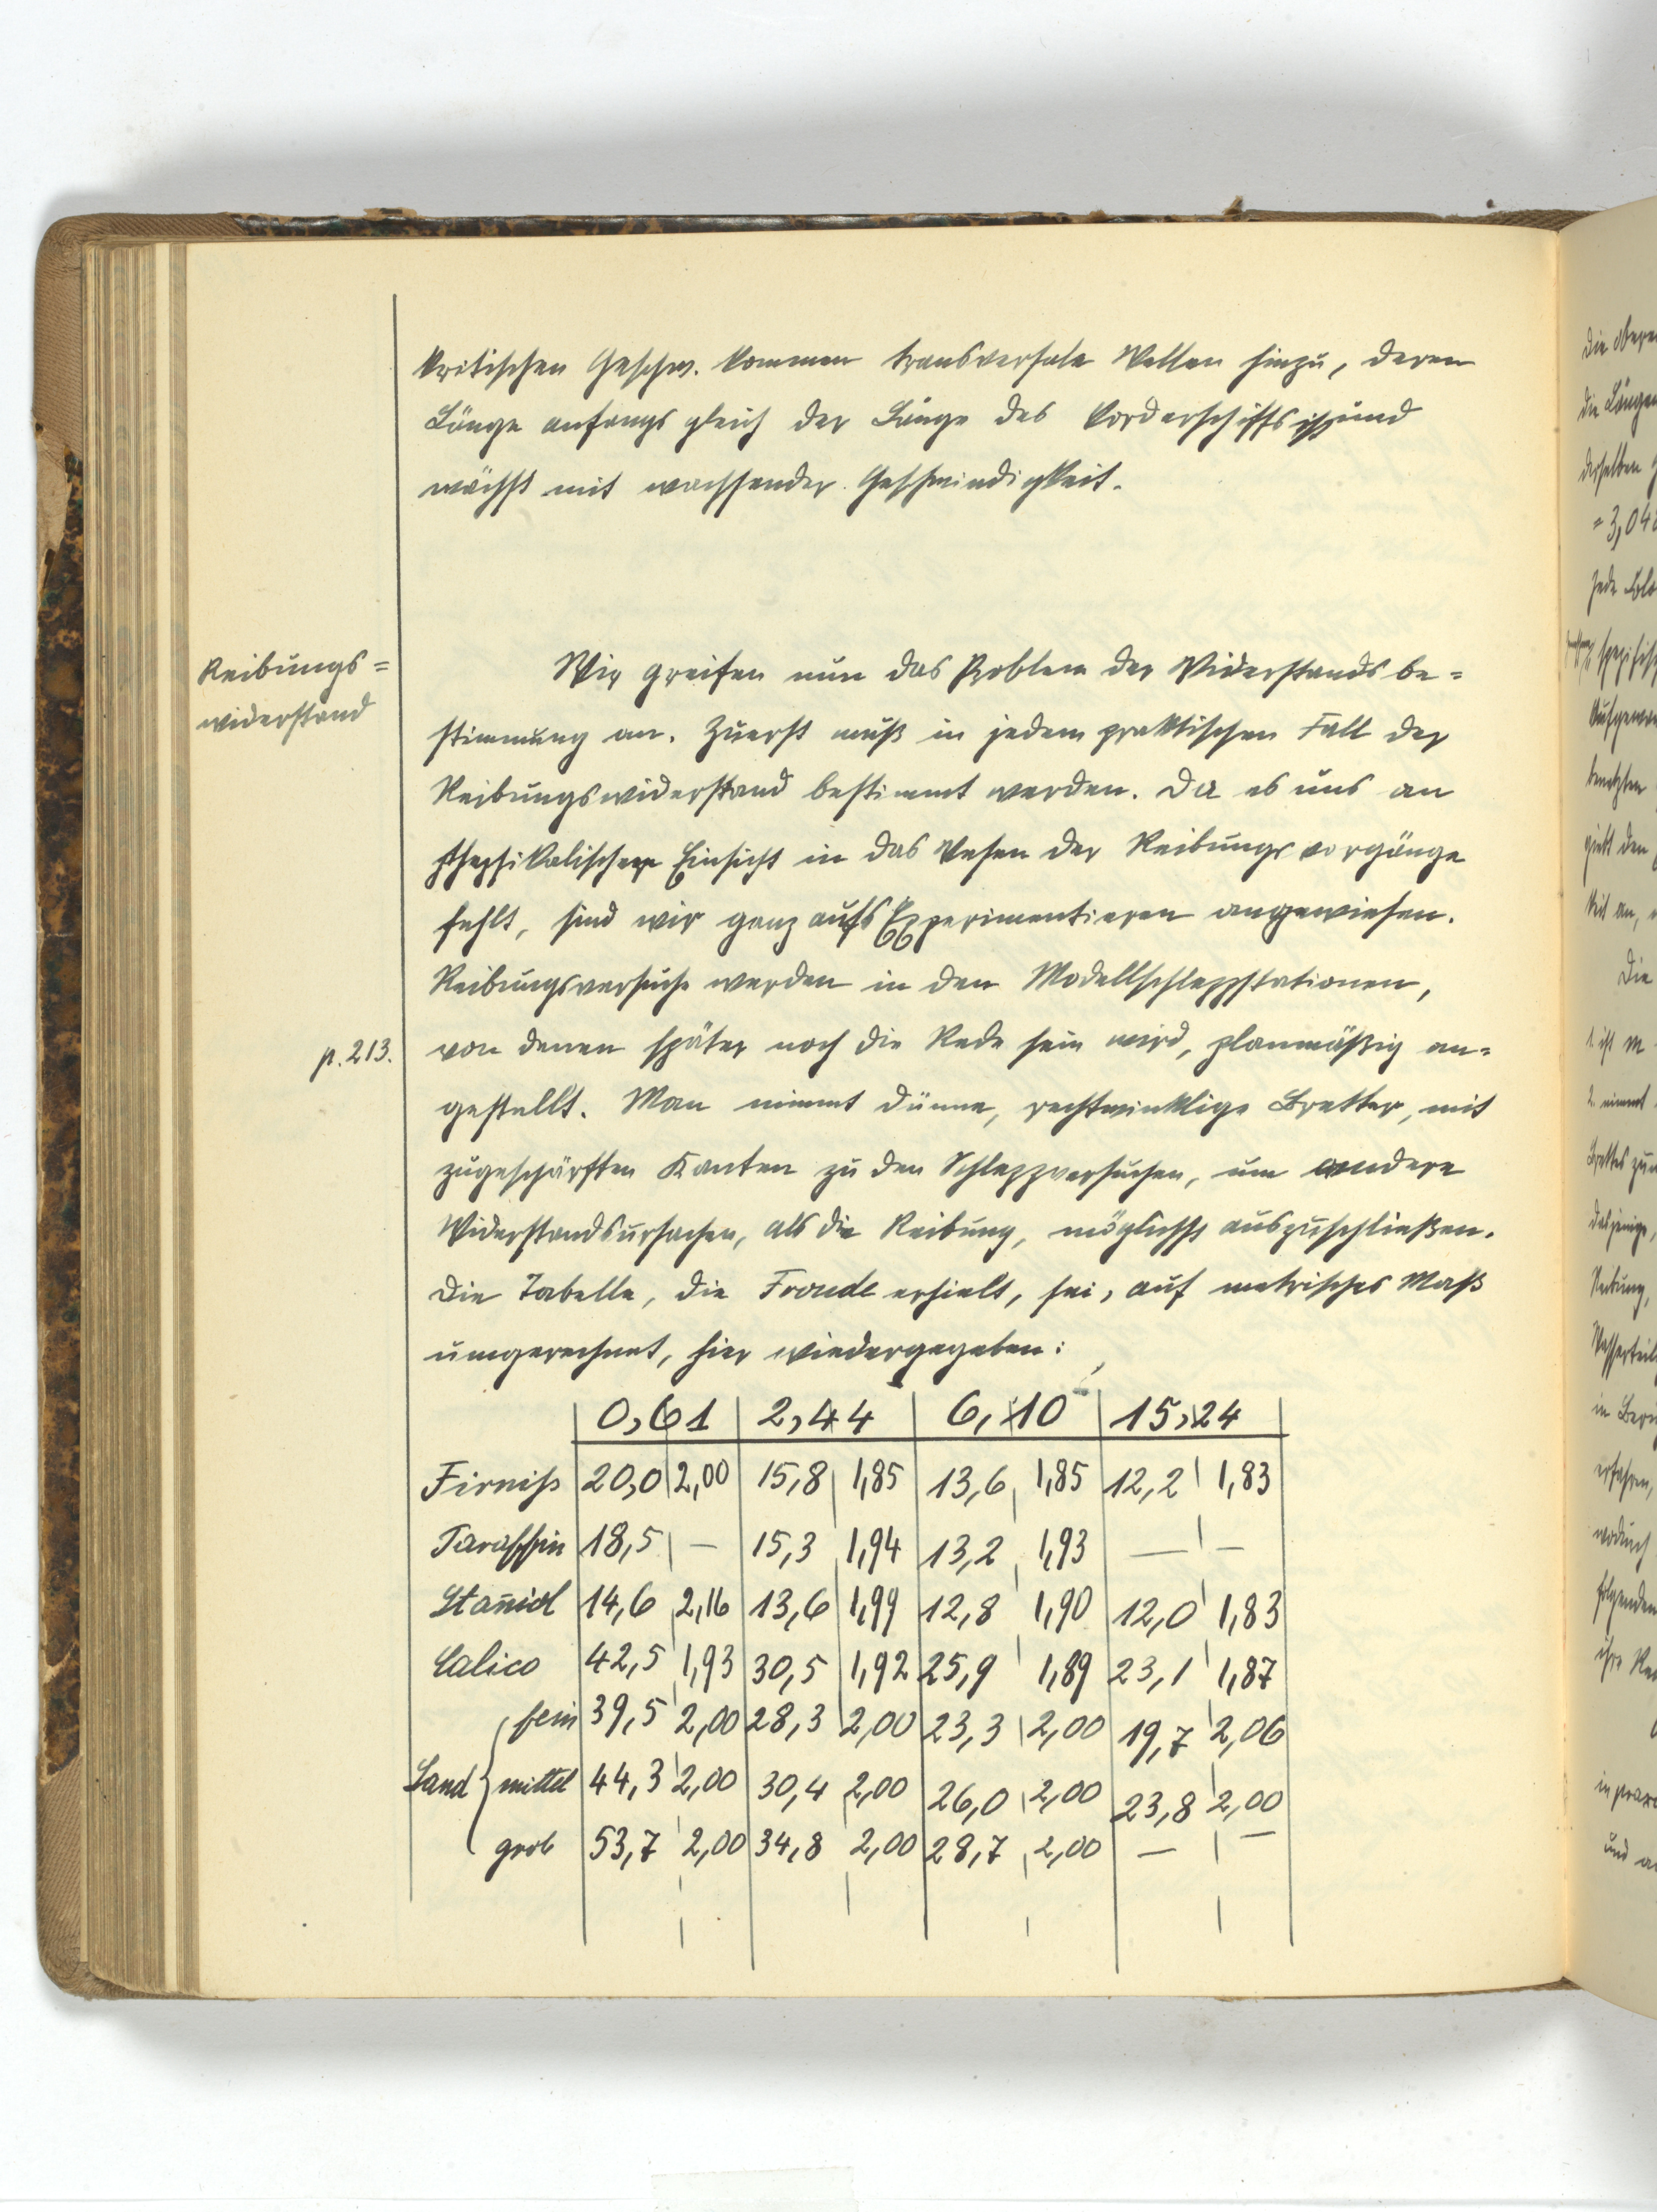 kritischen Geschw. kommen transversale Wellen hinzu, deren
Länge anfangs gleich der Länge des Vorderschiffs ist und
wächst mit wachsender Geschwindigkeit.
Reibungs=
widerstand
Wir greifen nun das Problem der Widerstandsbe=
stimmung an. Zuerst muß in jedem praktischen Fall der
Reibungswiderstand bestimmt werden. Da es uns an
physikalischer Einsicht in das Wesen der Reibungsvorgänge
fehlt, sind wir ganz aufs Experimentieren angewiesen.
Reibungsversuche werden in den Modellschleppstationen,
p. 213.
von denen später noch die Rede sein wird, planmäßig an=
gestellt. Man nimmt dünne, rechtwinklige Bretter, mit
zugeschärften Kanten zu den Schleppversuchen, um andere
Widerstandsursachen, als die Reibung, möglichst auszuschließen.
Die Tabelle, die Froude erhielt, sei, auf metrisches Maß
umgerechnet, hier wiedergegeben:
0,61 2,44 6,10 15,24
Firniss 20,0 2,00 15,8 1,85 13,6 1,85 12,2 1,83
Paraffin 18,5 — 15,3 1,94 13,2 1,93 — —
Stan̄iol 14,6 2,16 13,6 1,99 12,8 1,90 12,0 1,83
Calico 42,5 1,93 30,5 1,92 25,9 1,89 23,1 1,87
fein 39,5 2,00 28,3 2,00 23,3 2,00 19,7 2,06
Sand mittel 44,3 2,00 30,4 2,00 26,0 2,00 23,8 2,00
grob 53,7 2,00 34,8 2,00 28,7 2,00 — —